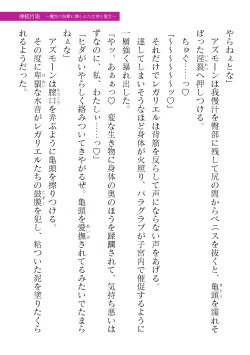 神核汚染 ～魔悦の胎動に膨らみゆく女神と聖女～
やらねぇとな」
アズモーンは我慢汁を臀部に残して尻の間からペニスを抜くと、亀頭を濡れそ
ぼった淫裂へ押しつける。
ちゅぐ……っ♡
「～～～～～～～ッ♡」
それだけでレガリエルは背筋を反らして声にならない声をあげる。
達してしまいそうなほど身体が火照り、パラグラブが子宮内で催促するように
一層強く暴れ出した。
「やッ、あぁぁぁ♡ 変な生き物に身体の奥のほうを蹂躙されて、気持ち悪いは
ずなのに、私、わたしぃ……っ♡」
「ヒダがいやらしく絡みついてきやがるぜ。亀頭を愛撫されてるみたいでたまら
ねぇな」
アズモーンは膣口を弄ぶように亀頭を擦りつける。
その度に卑猥な水音がレガリエルたちの鼓膜を犯し、粘ついた泥を塗りたくら
れるようだった。